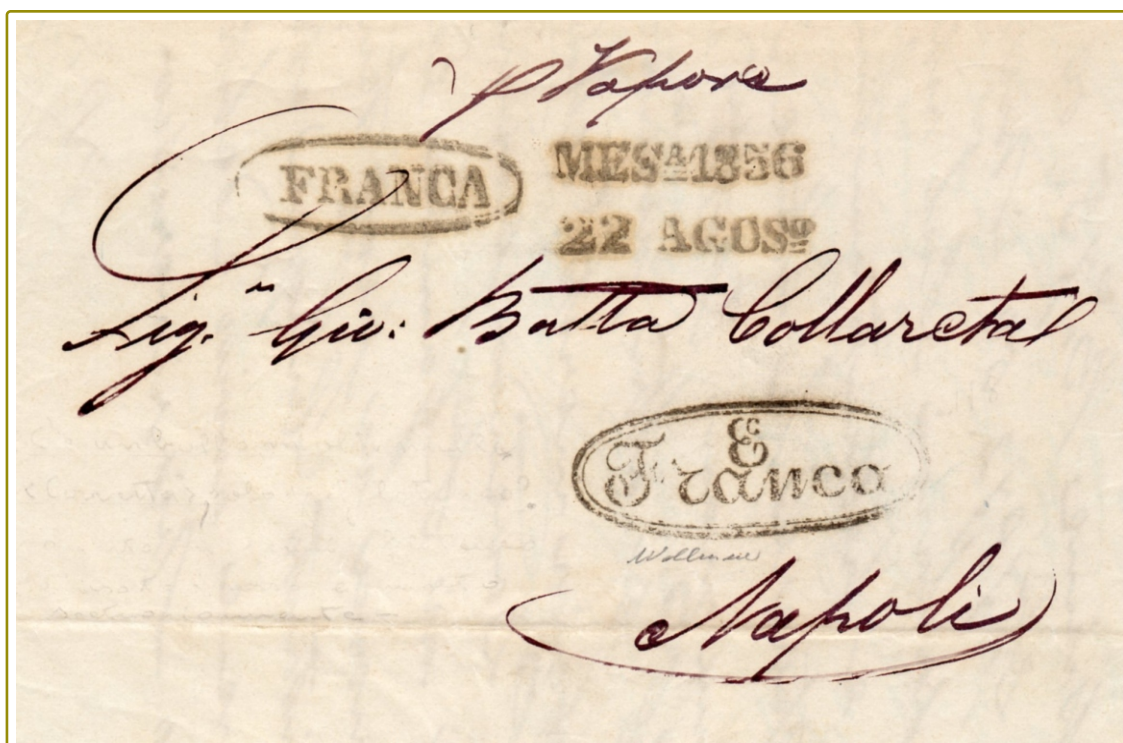 p Vapore
FRANCA
MESᴬ 1856
22 AGOSᵗᵒ
Sig.ⁿ Gio: Batta Collareta
E
Franca
Napoli